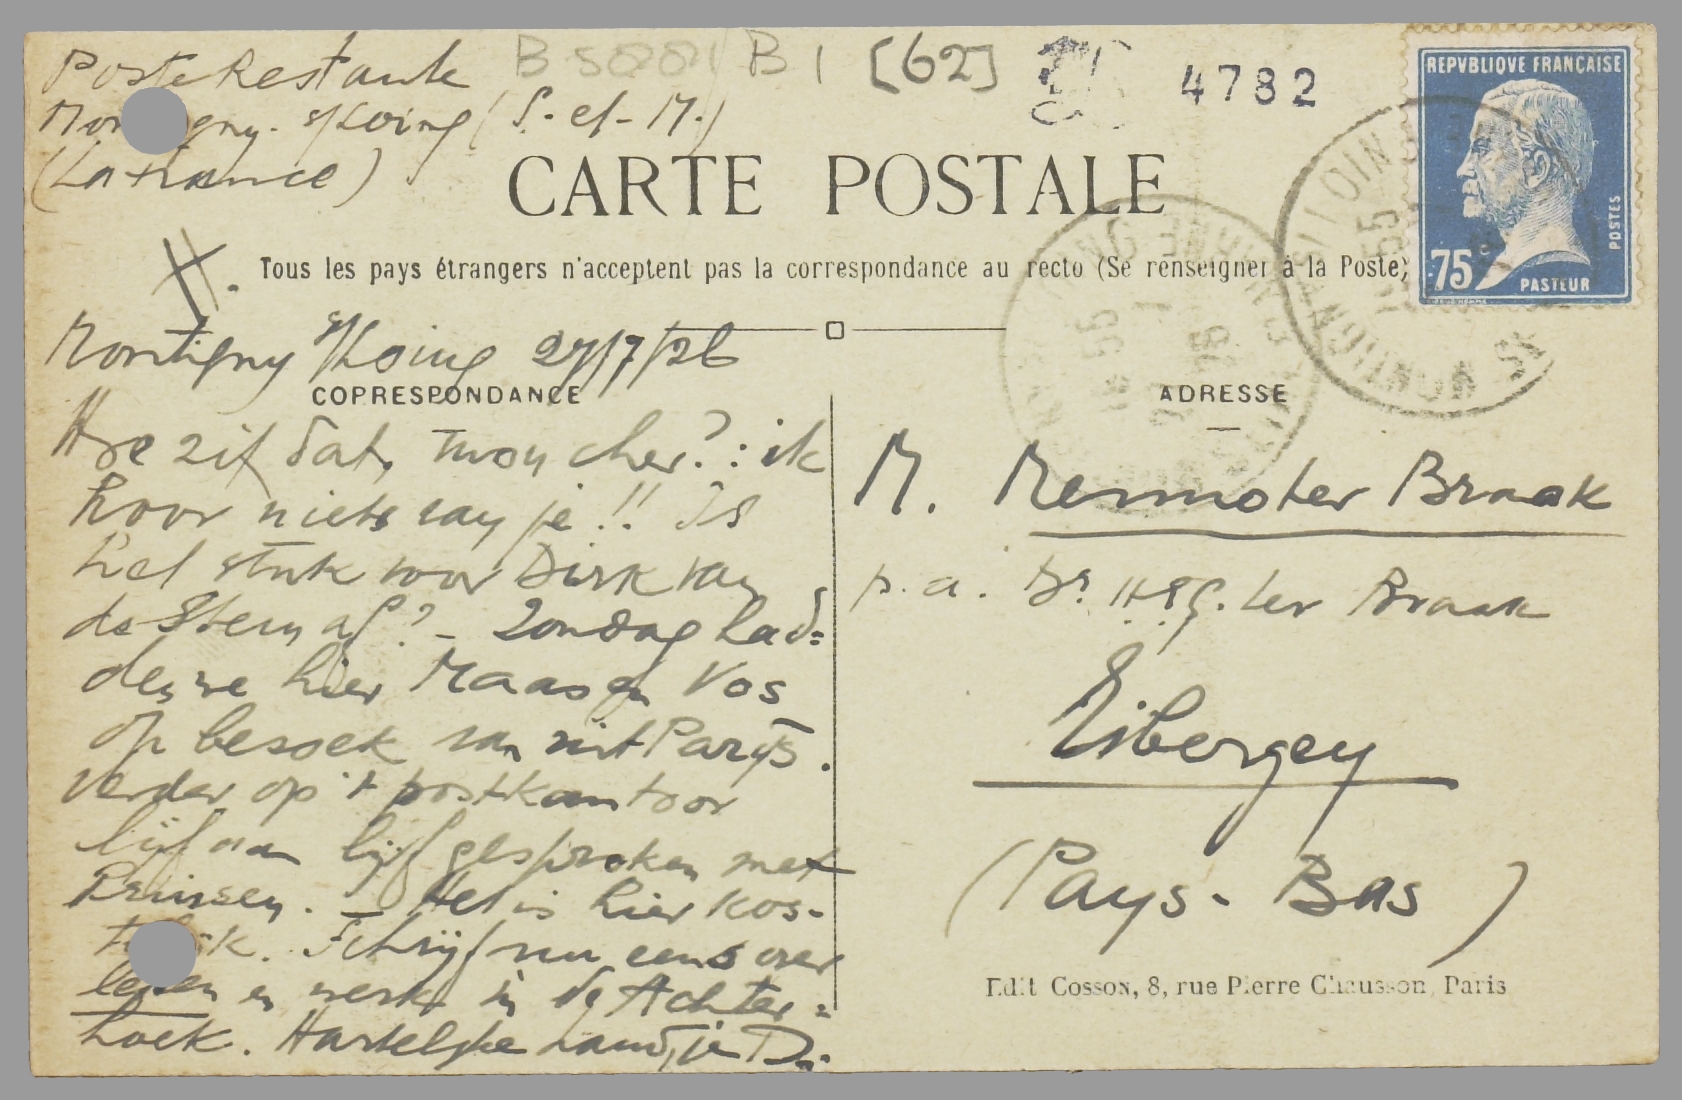 Poste Restante
B 5001 B 1 [62] 4782
Montigny. s/Loing (S.-et-M.)
(La France)
REPVBLIQVE FRANÇAISE
POSTES
75c
PASTEUR
CARTE POSTALE
Tous les pays étrangers n'acceptent pas la correspondance au recto (Se renseigner à la Poste)
Montigny s/Loing 27/7/26
CORRESPONDANCE
Hoe zit dat, mon cher?: ik
hoor niets van je!! Is
het stuk voor Dirk van
de Steen af? – Zondag had=
den we hier Maas en Vos
op bezoek van uit Parijs.
verder op 't postkantoor
lijf aan lijf gesproken met
Pruisen. – Het is hier kos-
telijk. Schrijf nu eens over
leven en werk in de Achter=
hoek. Hartelijke hand, je D.
ADRESSE
M. Menno ter Braak
p.a. Dr. H.E.G. ter Braak
Eibergen
(Pays-Bas)
Edit Cosson, 8, rue Pierre Chausson, Paris